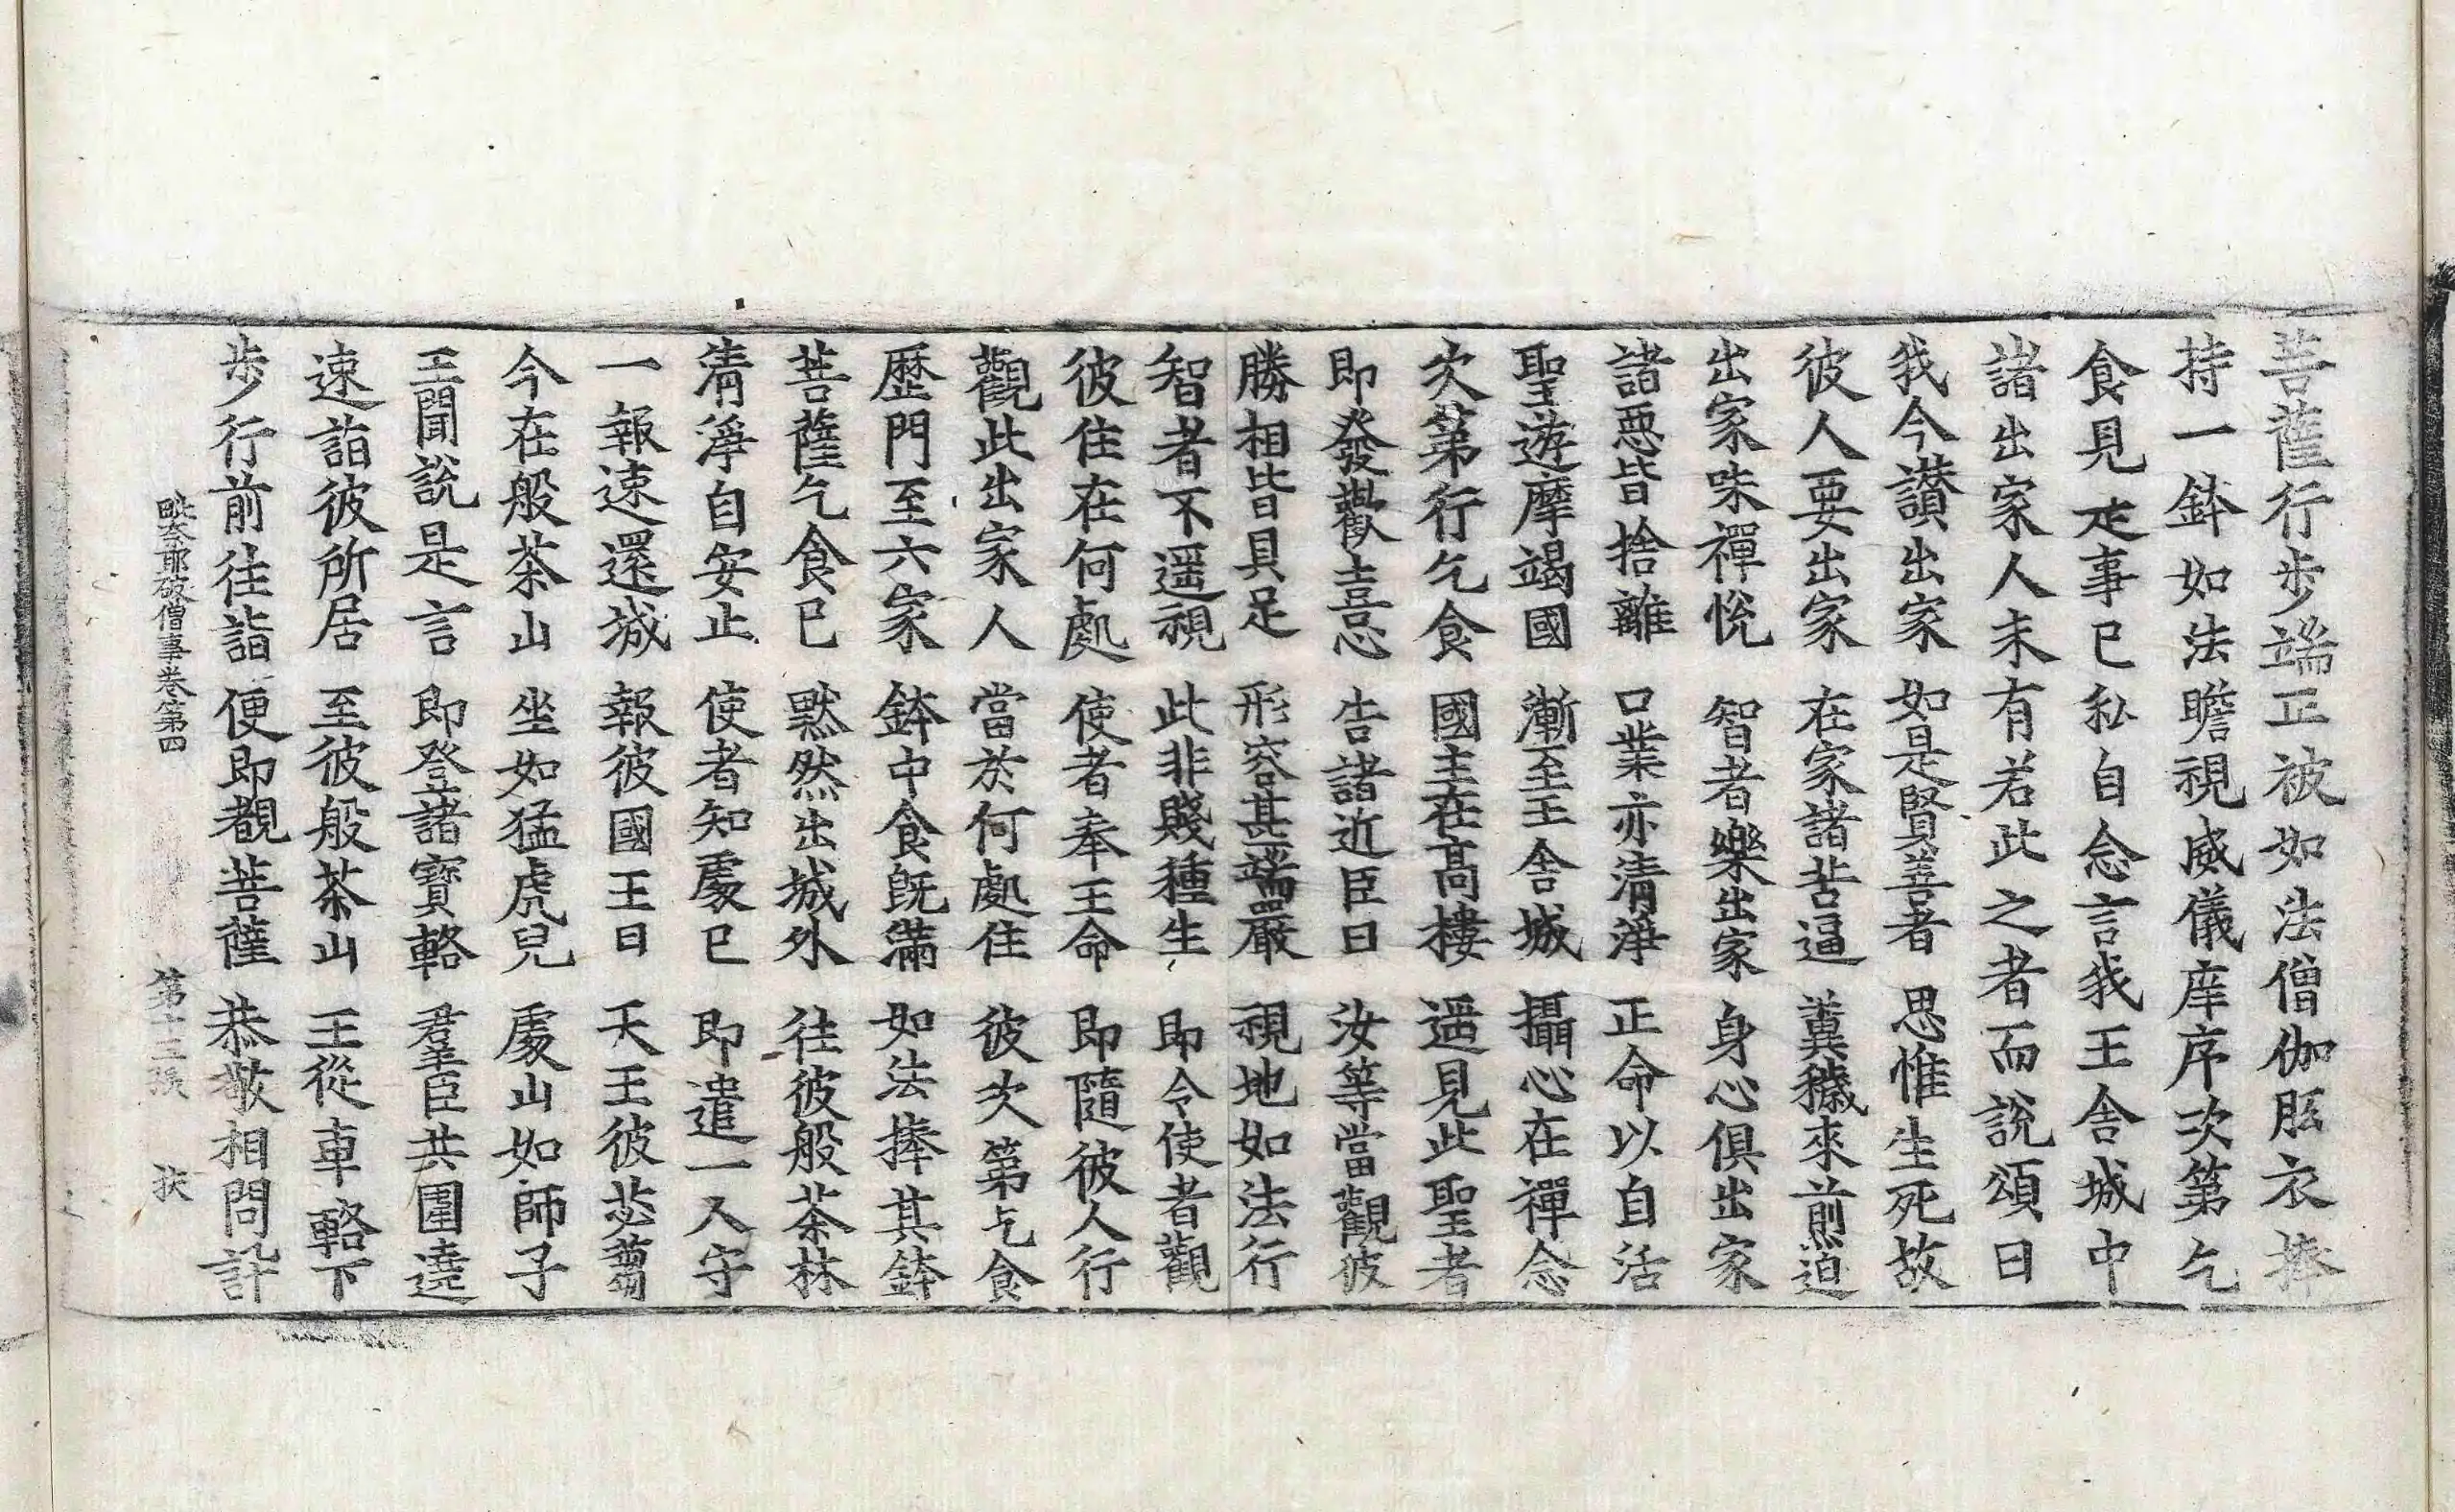 菩薩行步端正被如法僧伽胝衣捧
持一鉢如法瞻視威儀庠序次第乞
食見是事已私自念言我王舍城中
諸出家人未有若此之者而說頌曰
我今讚出家　如是賢善者　思惟生死故
彼人要出家　在家諸苦逼　糞穢來煎迫
出家味禪悅　智者樂出家　身心俱出家
諸惡皆捨離　口業亦清淨　正命以自活
聖遊摩竭國　漸至王舍城　攝心在禪念
次第行乞食　國主在高樓　遥見此聖者
即發歡喜心　告諸近臣曰　汝等當觀彼
勝相皆具足　形容甚端嚴　視地如法行
智者不遥視　此非賤種生　即令使者觀
彼住在何處　使者奉王命　即隨彼人行
觀此出家人　當於何處住　彼次第乞食
歷門至六家　鉢中食旣滿　如法捧其鉢
菩薩乞食已　默然出城外　往彼般茶林
清淨自安止　使者知處已　即遣一人守
一報速還城　報彼國王曰　天王彼苾蒭
今在般茶山　坐如猛虎兒　處山如師子
王聞說是言　即登諸寶輅　羣臣共圍遶
速詣彼所居　至彼般茶山　王從車輅下
步行前往詣　便即覩菩薩　恭敬相問訊
毗奈耶破僧事卷第四　第十三張　扶